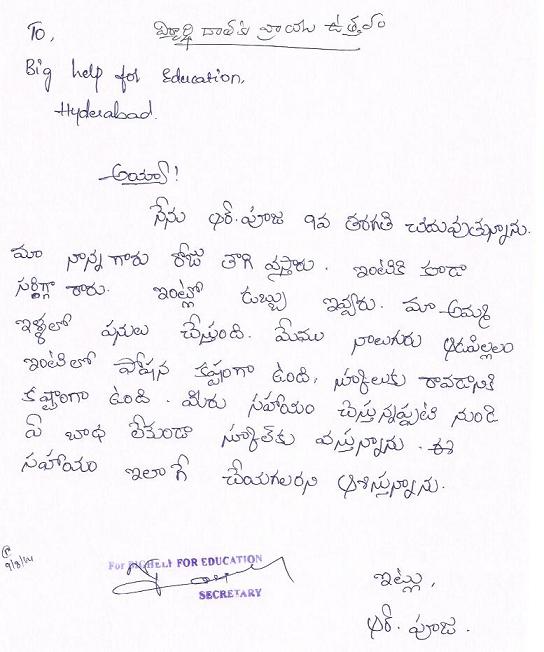 విద్యార్థి దాతకు వ్రాయు ఉత్తరం
To,
Big help for Education,
Hyderabad.
అయ్యా!
నేను ఆర్. పూజ 9వ తరగతి చదువుతున్నాను.
మా నాన్న గారు రోజు తాగి వస్తారు. ఇంటికి కూడా
సరిగ్గా రారు. ఇంట్లో డబ్బు ఇవ్వరు. మా అమ్మ
ఇళ్ళలో పనులు చేస్తుంది. మేము నాలుగురు ఆడపిల్లలం
ఇంటిలో పోషన కష్టంగా ఉంది, స్కూలుకు రావడానికి
కష్టంగా ఉంది. మీరు సహాయం చేస్తున్నప్పటి నుండి
ఏ బాధ లేకుండా స్కూల్‌కు వస్తున్నాను. ఈ
సహాయం ఇలాగే చేయగలరని ఆశిస్తున్నాను.
9/8/14
For BIGHELP FOR EDUCATION
SECRETARY
ఇట్లు,
ఆర్. పూజ.